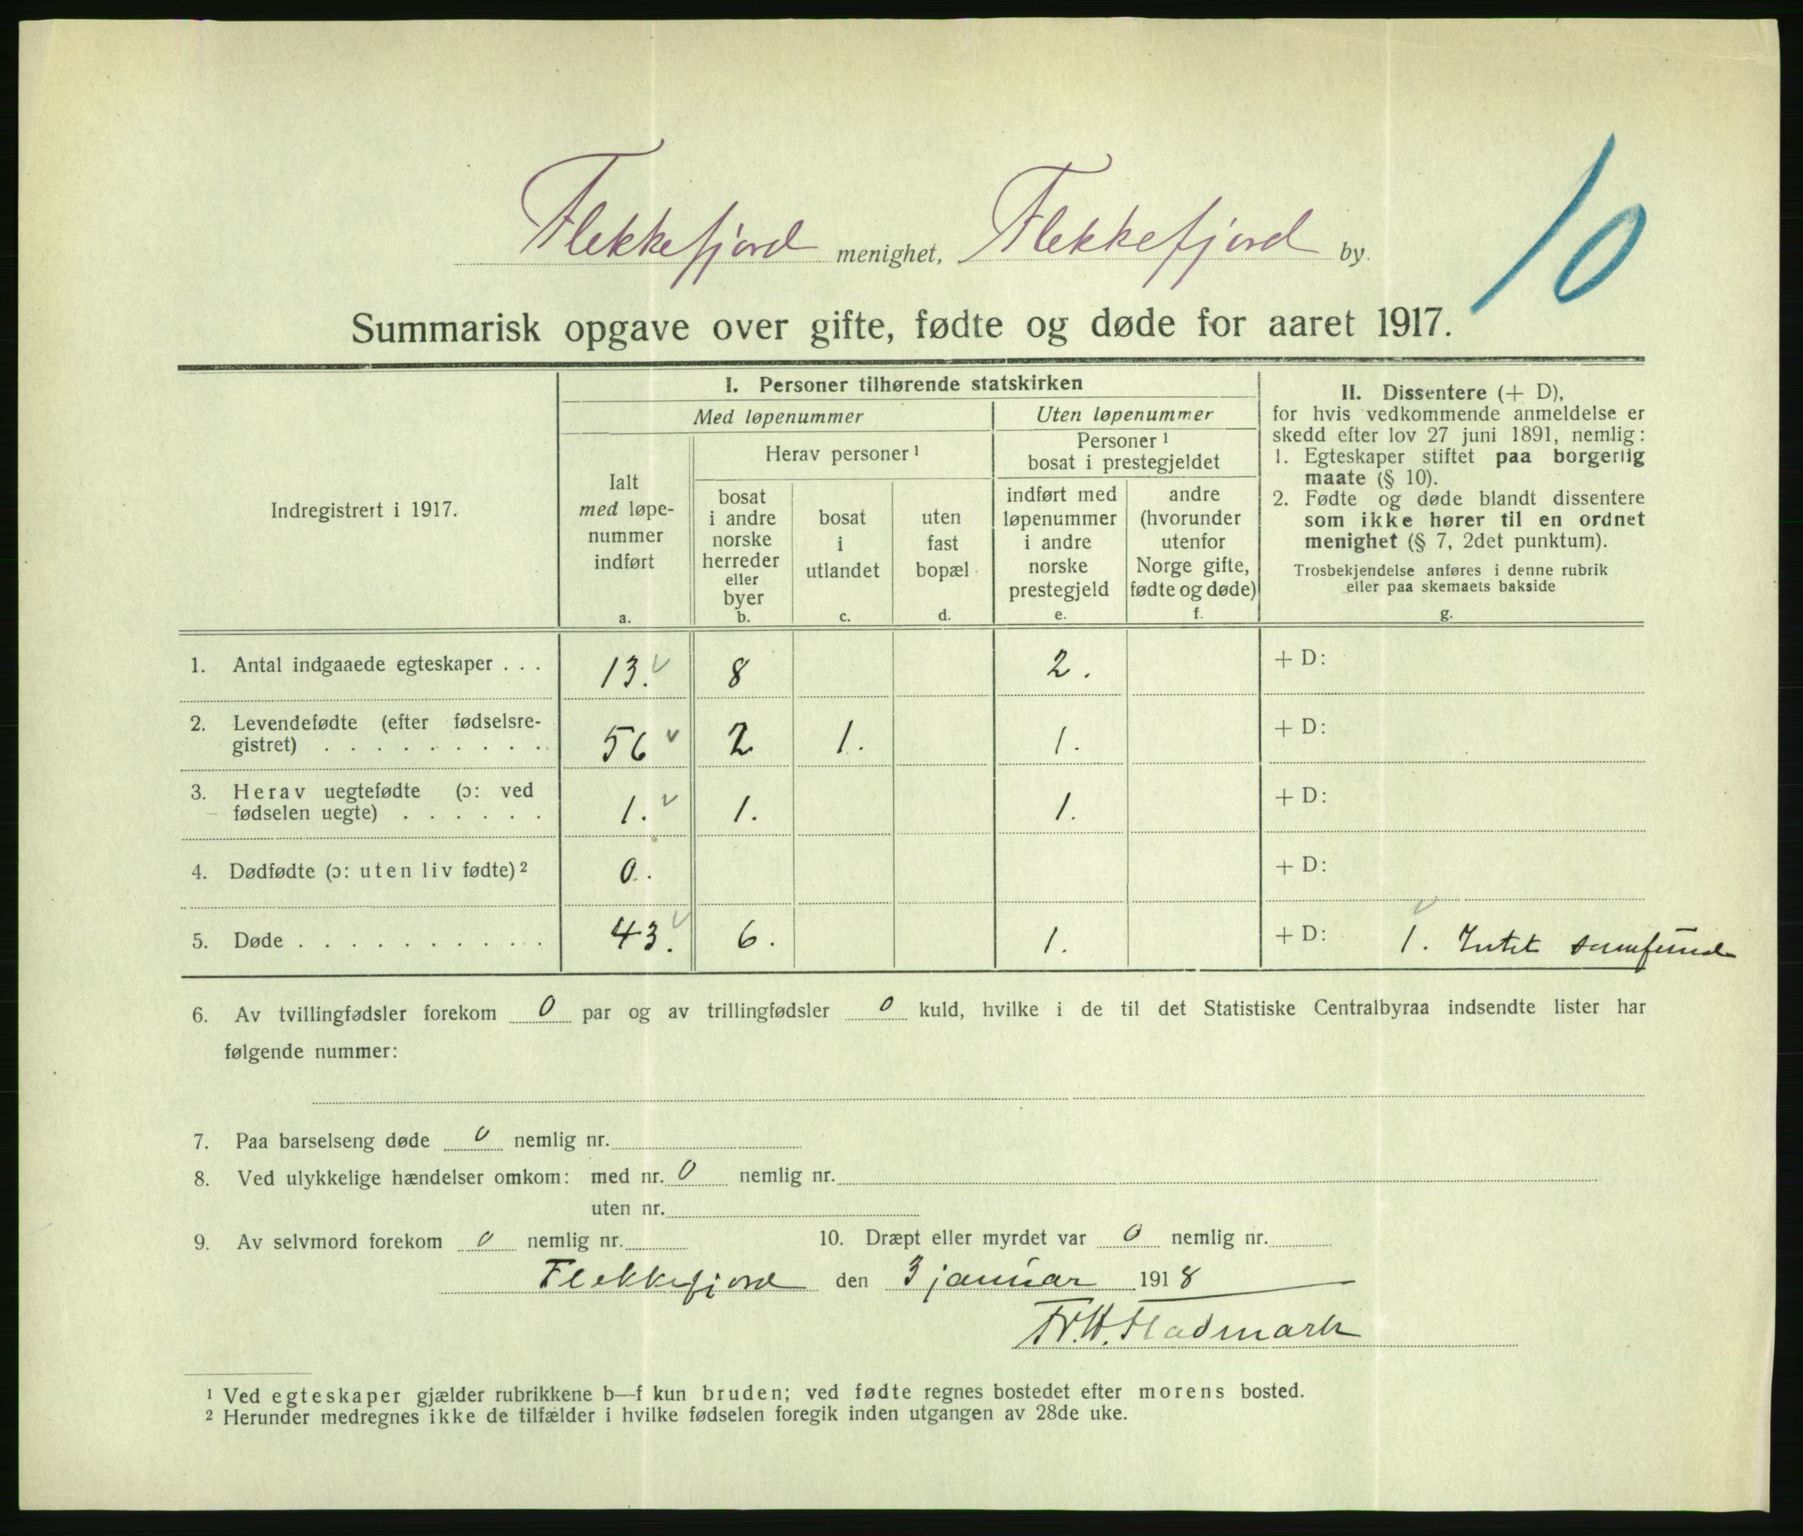 10
Flekkefjord menighet, Flekkefjord by.
Summarisk opgave over gifte, fødte og døde for aaret 1917.
Indregistrert i 1917.
I. Personer tilhørende statskirken
Med løpenummer
Uten løpenummer
Ialt
med løpe-
nummer
indført
a.
Herav personer ¹
bosat
i andre
norske
herreder
eller
byer
b.
bosat
i
utlandet
c.
uten
fast
bopæl
d.
Personer ¹
bosat i prestegjeldet
indført med
løpenummer
i andre
norske
prestegjeld
e.
andre
(hvorunder
utenfor
Norge gifte,
fødte og døde)
f.
II. Dissentere (+ D),
for hvis vedkommende anmeldelse er
skedd efter lov 27 juni 1891, nemlig:
1. Egteskaper stiftet paa borgerlig
maate (§ 10).
2. Fødte og døde blandt dissentere
som ikke hører til en ordnet
menighet (§ 7, 2det punktum).
Trosbekjendelse anføres i denne rubrik
eller paa skemaets bakside
g.
1. Antal indgaaede egteskaper . . . 13. 8 2. + D:
2. Levendefødte (efter fødselsre-
gistret) . . . . . . . . . 56 2 1. 1. + D:
3. Herav uegtefødte (ɔ: ved
fødselen uegte) . . . . . . 1. 1. 1. + D:
4. Dødfødte (ɔ: uten liv fødte) ² 0. + D:
5. Døde . . . . . . . . . . 43. 6. 1. + D: 1. Intet samfund
6. Av tvillingfødsler forekom 0 par og av trillingfødsler 0 kuld, hvilke i de til det Statistiske Centralbyraa indsendte lister har
følgende nummer:
7. Paa barselseng døde 0 nemlig nr.
8. Ved ulykkelige hændelser omkom: med nr. 0 nemlig nr.
uten nr.
9. Av selvmord forekom 0 nemlig nr. 10. Dræpt eller myrdet var 0 nemlig nr.
Flekkefjord den 3 januar 1918
Fr. H. Stadmark
¹ Ved egteskaper gjælder rubrikkene b—f kun bruden; ved fødte regnes bostedet efter morens bosted.
² Herunder medregnes ikke de tilfælder i hvilke fødselen foregik inden utgangen av 28de uke.